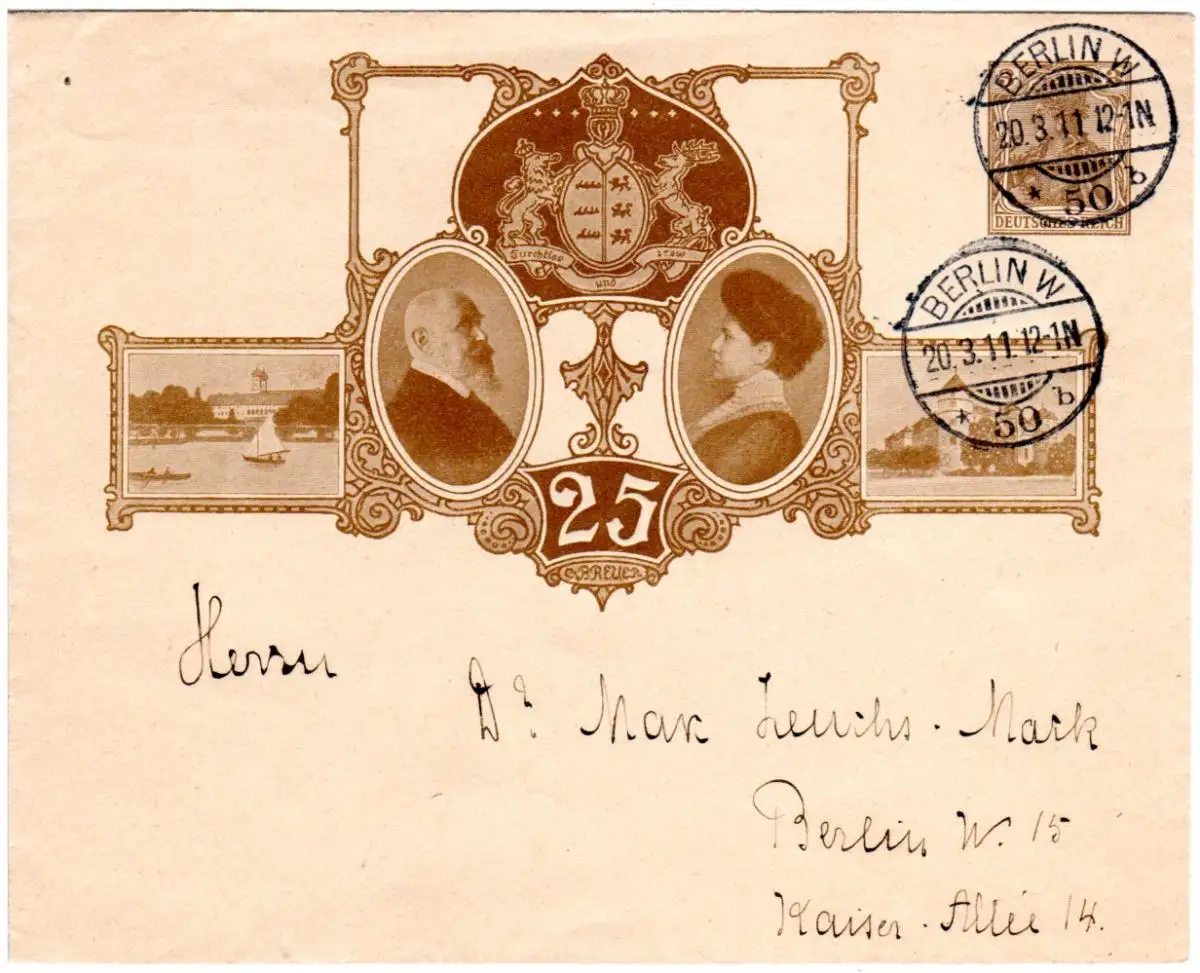 BERLIN W
20.3.11 12-1N
* 50 b
DEUTSCHES REICH
Furchtlos
und
trew
BERLIN W
20.3.11. 12-1N
* 50 b
25
BREUER
Herrn
Dr. Max Leuchs-Mark
Berlin W. 15
Kaiser-Allée 14.